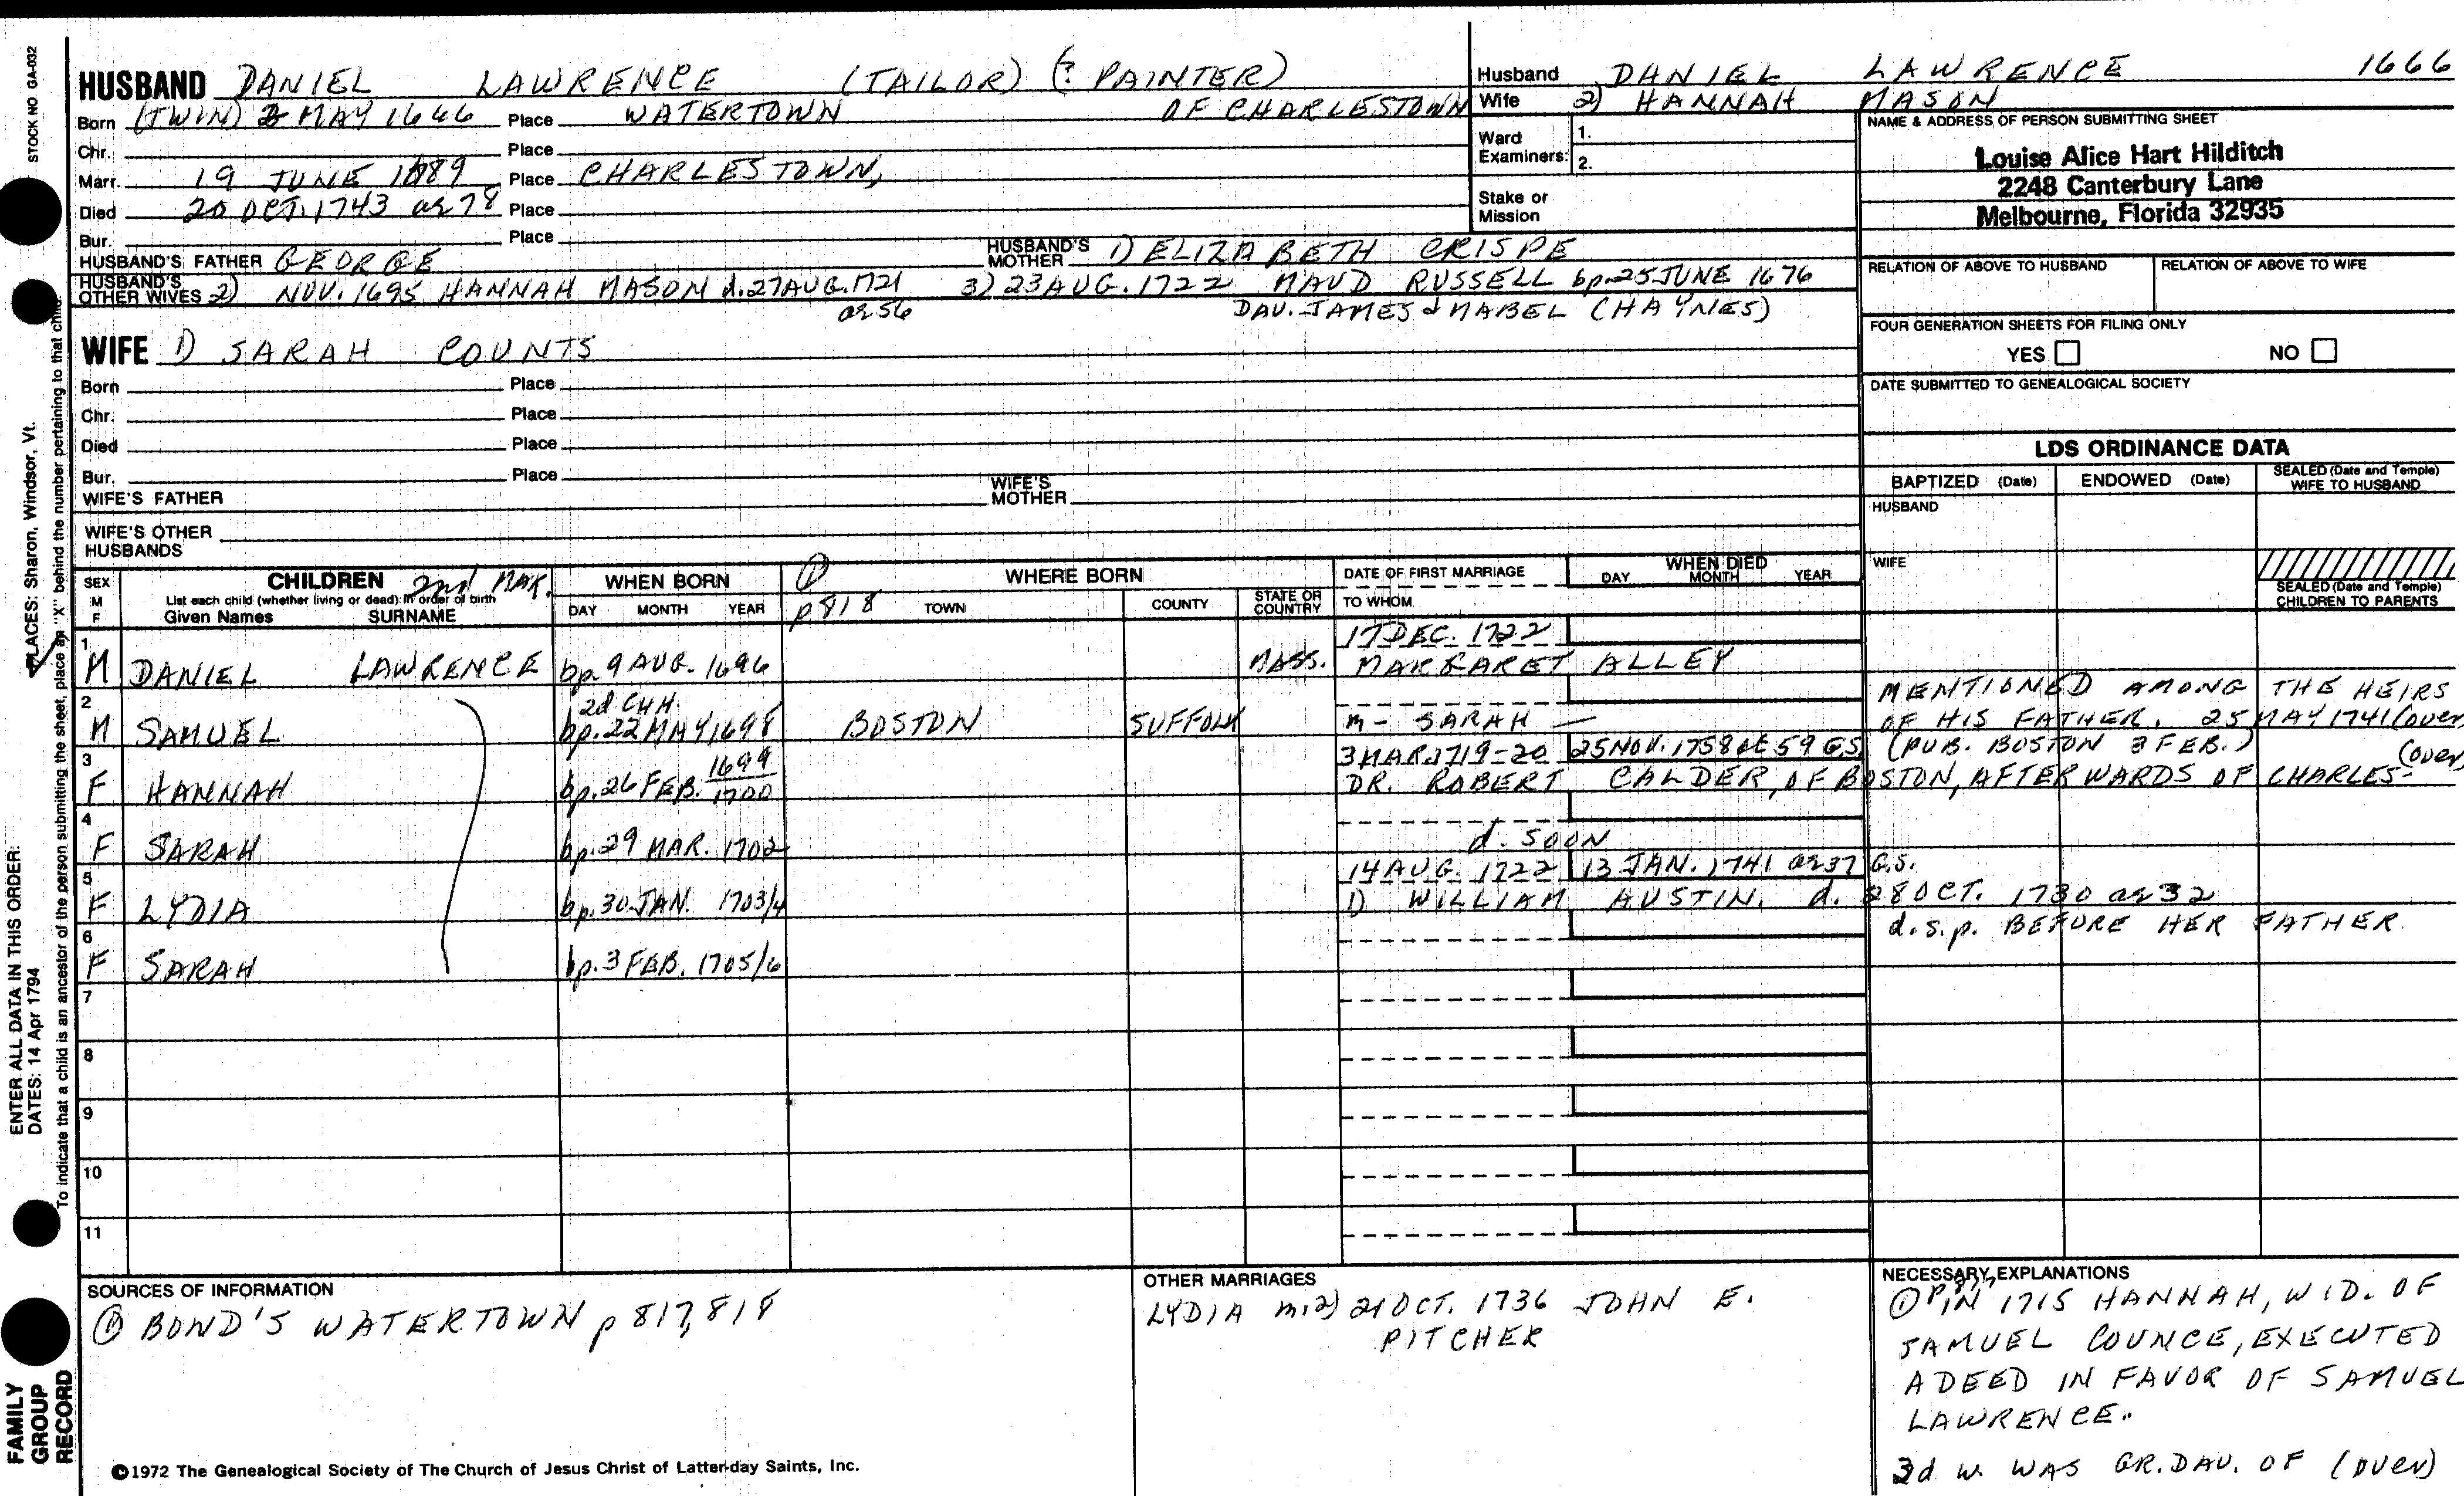 STOCK NO. GA-032
HUSBAND DANIEL LAWRENCE (TAILOR) (? PAINTER)
Born (TWIN) 2 MAY 1666 Place WATERTOWN OF CHARLESTOWN
Chr. Place
Marr. 19 JUNE 1689 Place CHARLESTOWN,
Died 20 OCT. 1743 ae 78 Place
Bur. Place
HUSBAND'S FATHER GEORGE HUSBAND'S MOTHER 1) ELIZABETH CRISPE
HUSBAND'S OTHER WIVES 2) NOV. 1695 HANNAH MASON d. 27 AUG. 1721 3) 23 AUG. 1722 MAUD RUSSELL bp. 25 JUNE 1676
ae 56 DAU. JAMES & MABEL (HAYNES)
WIFE 1) SARAH COUNTS
Born Place
Chr. Place
Died Place
Bur. Place
WIFE'S FATHER WIFE'S MOTHER
WIFE'S OTHER HUSBANDS
Husband DANIEL LAWRENCE 1666
Wife 2) HANNAH MASON
Ward Examiners: 1.
2.
Stake or Mission
NAME & ADDRESS OF PERSON SUBMITTING SHEET
Louise Alice Hart Hilditch
2248 Canterbury Lane
Melbourne, Florida 32935
RELATION OF ABOVE TO HUSBAND RELATION OF ABOVE TO WIFE
FOUR GENERATION SHEETS FOR FILING ONLY
YES NO
DATE SUBMITTED TO GENEALOGICAL SOCIETY
LDS ORDINANCE DATA
BAPTIZED (Date) ENDOWED (Date) SEALED (Date and Temple) WIFE TO HUSBAND
HUSBAND
WIFE
SEALED (Date and Temple) CHILDREN TO PARENTS
SEX M F CHILDREN 2nd MAR. WHEN BORN ① WHERE BORN DATE OF FIRST MARRIAGE WHEN DIED
List each child (whether living or dead) in order of birth
Given Names SURNAME DAY MONTH YEAR p 818 TOWN COUNTY STATE OR COUNTRY TO WHOM DAY MONTH YEAR
17 DEC. 1722
1 M DANIEL LAWRENCE bp. 9 AUG. 1696 MASS. MARGARET ALLEY
2d CHH. MENTIONED AMONG THE HEIRS
2 M SAMUEL bp. 22 MAY 1698 BOSTON SUFFOLK m- SARAH — OF HIS FATHER. 25 MAY 1741 (over)
3 MAR. 1719-20 25 NOV. 1758 AE 59 G.S. (PUB. BOSTON 3 FEB.) (over)
3 F HANNAH bp. 26 FEB. 1699/1700 DR. ROBERT CALDER, OF BOSTON, AFTERWARDS OF CHARLES-
4 F SARAH bp. 29 MAR. 1702 d. SOON
14 AUG. 1722 13 JAN. 1741 ae 37 G.S.
5 F LYDIA bp. 30 JAN. 1703/4 1) WILLIAM AUSTIN. d. 28 OCT. 1730 ae 32
d.s.p. BEFORE HER FATHER.
6 F SARAH bp. 3 FEB. 1705/6
7
8
9
10
11
SOURCES OF INFORMATION
① BOND'S WATERTOWN p 817, 818
OTHER MARRIAGES
LYDIA m. 2) 21 OCT. 1736 JOHN E.
PITCHER
NECESSARY EXPLANATIONS
① P 817 IN 1715 HANNAH, WID. OF
SAMUEL COUNCE, EXECUTED
A DEED IN FAVOR OF SAMUEL
LAWRENCE.
3d W. WAS GR. DAU. OF (over)
©1972 The Genealogical Society of The Church of Jesus Christ of Latter-day Saints, Inc.
ENTER ALL DATA IN THIS ORDER:
DATES: 14 Apr 1794
PLACES: Sharon, Windsor, Vt.
To indicate that a child is an ancestor of the person submitting the sheet, place an "X" behind the number pertaining to that child.
FAMILY
GROUP
RECORD